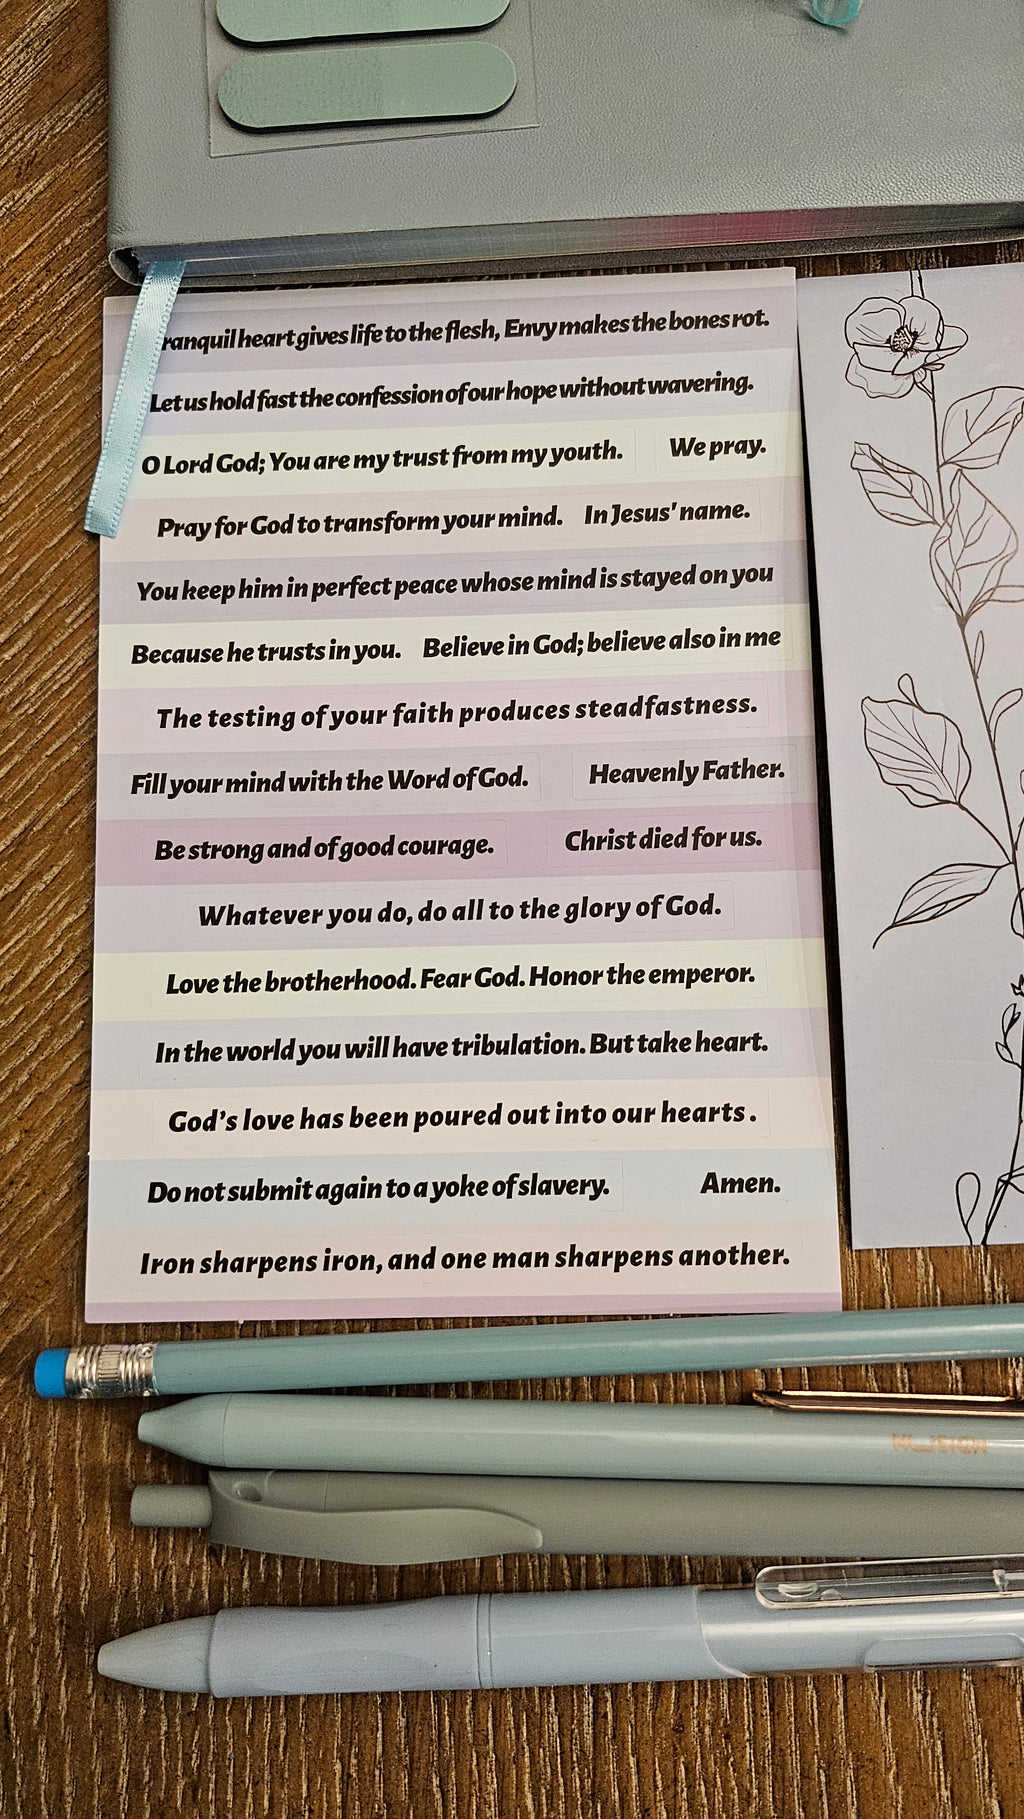 heart gives life to the flesh, Envy makes the bones rot.
Let us hold fast the confession of our hope without wavering.
O Lord God; You are my trust from my youth. We pray.
Pray for God to transform your mind. In Jesus' name.
You keep him in perfect peace whose mind is stayed on you
Because he trusts in you. Believe in God; believe also in me
The testing of your faith produces steadfastness.
Fill your mind with the Word of God. Heavenly Father.
Be strong and of good courage. Christ died for us.
Whatever you do, do all to the glory of God.
Love the brotherhood. Fear God. Honor the emperor.
In the world you will have tribulation. But take heart.
God's love has been poured out into our hearts.
Do not submit again to a yoke of slavery. Amen.
Iron sharpens iron, and one man sharpens another.